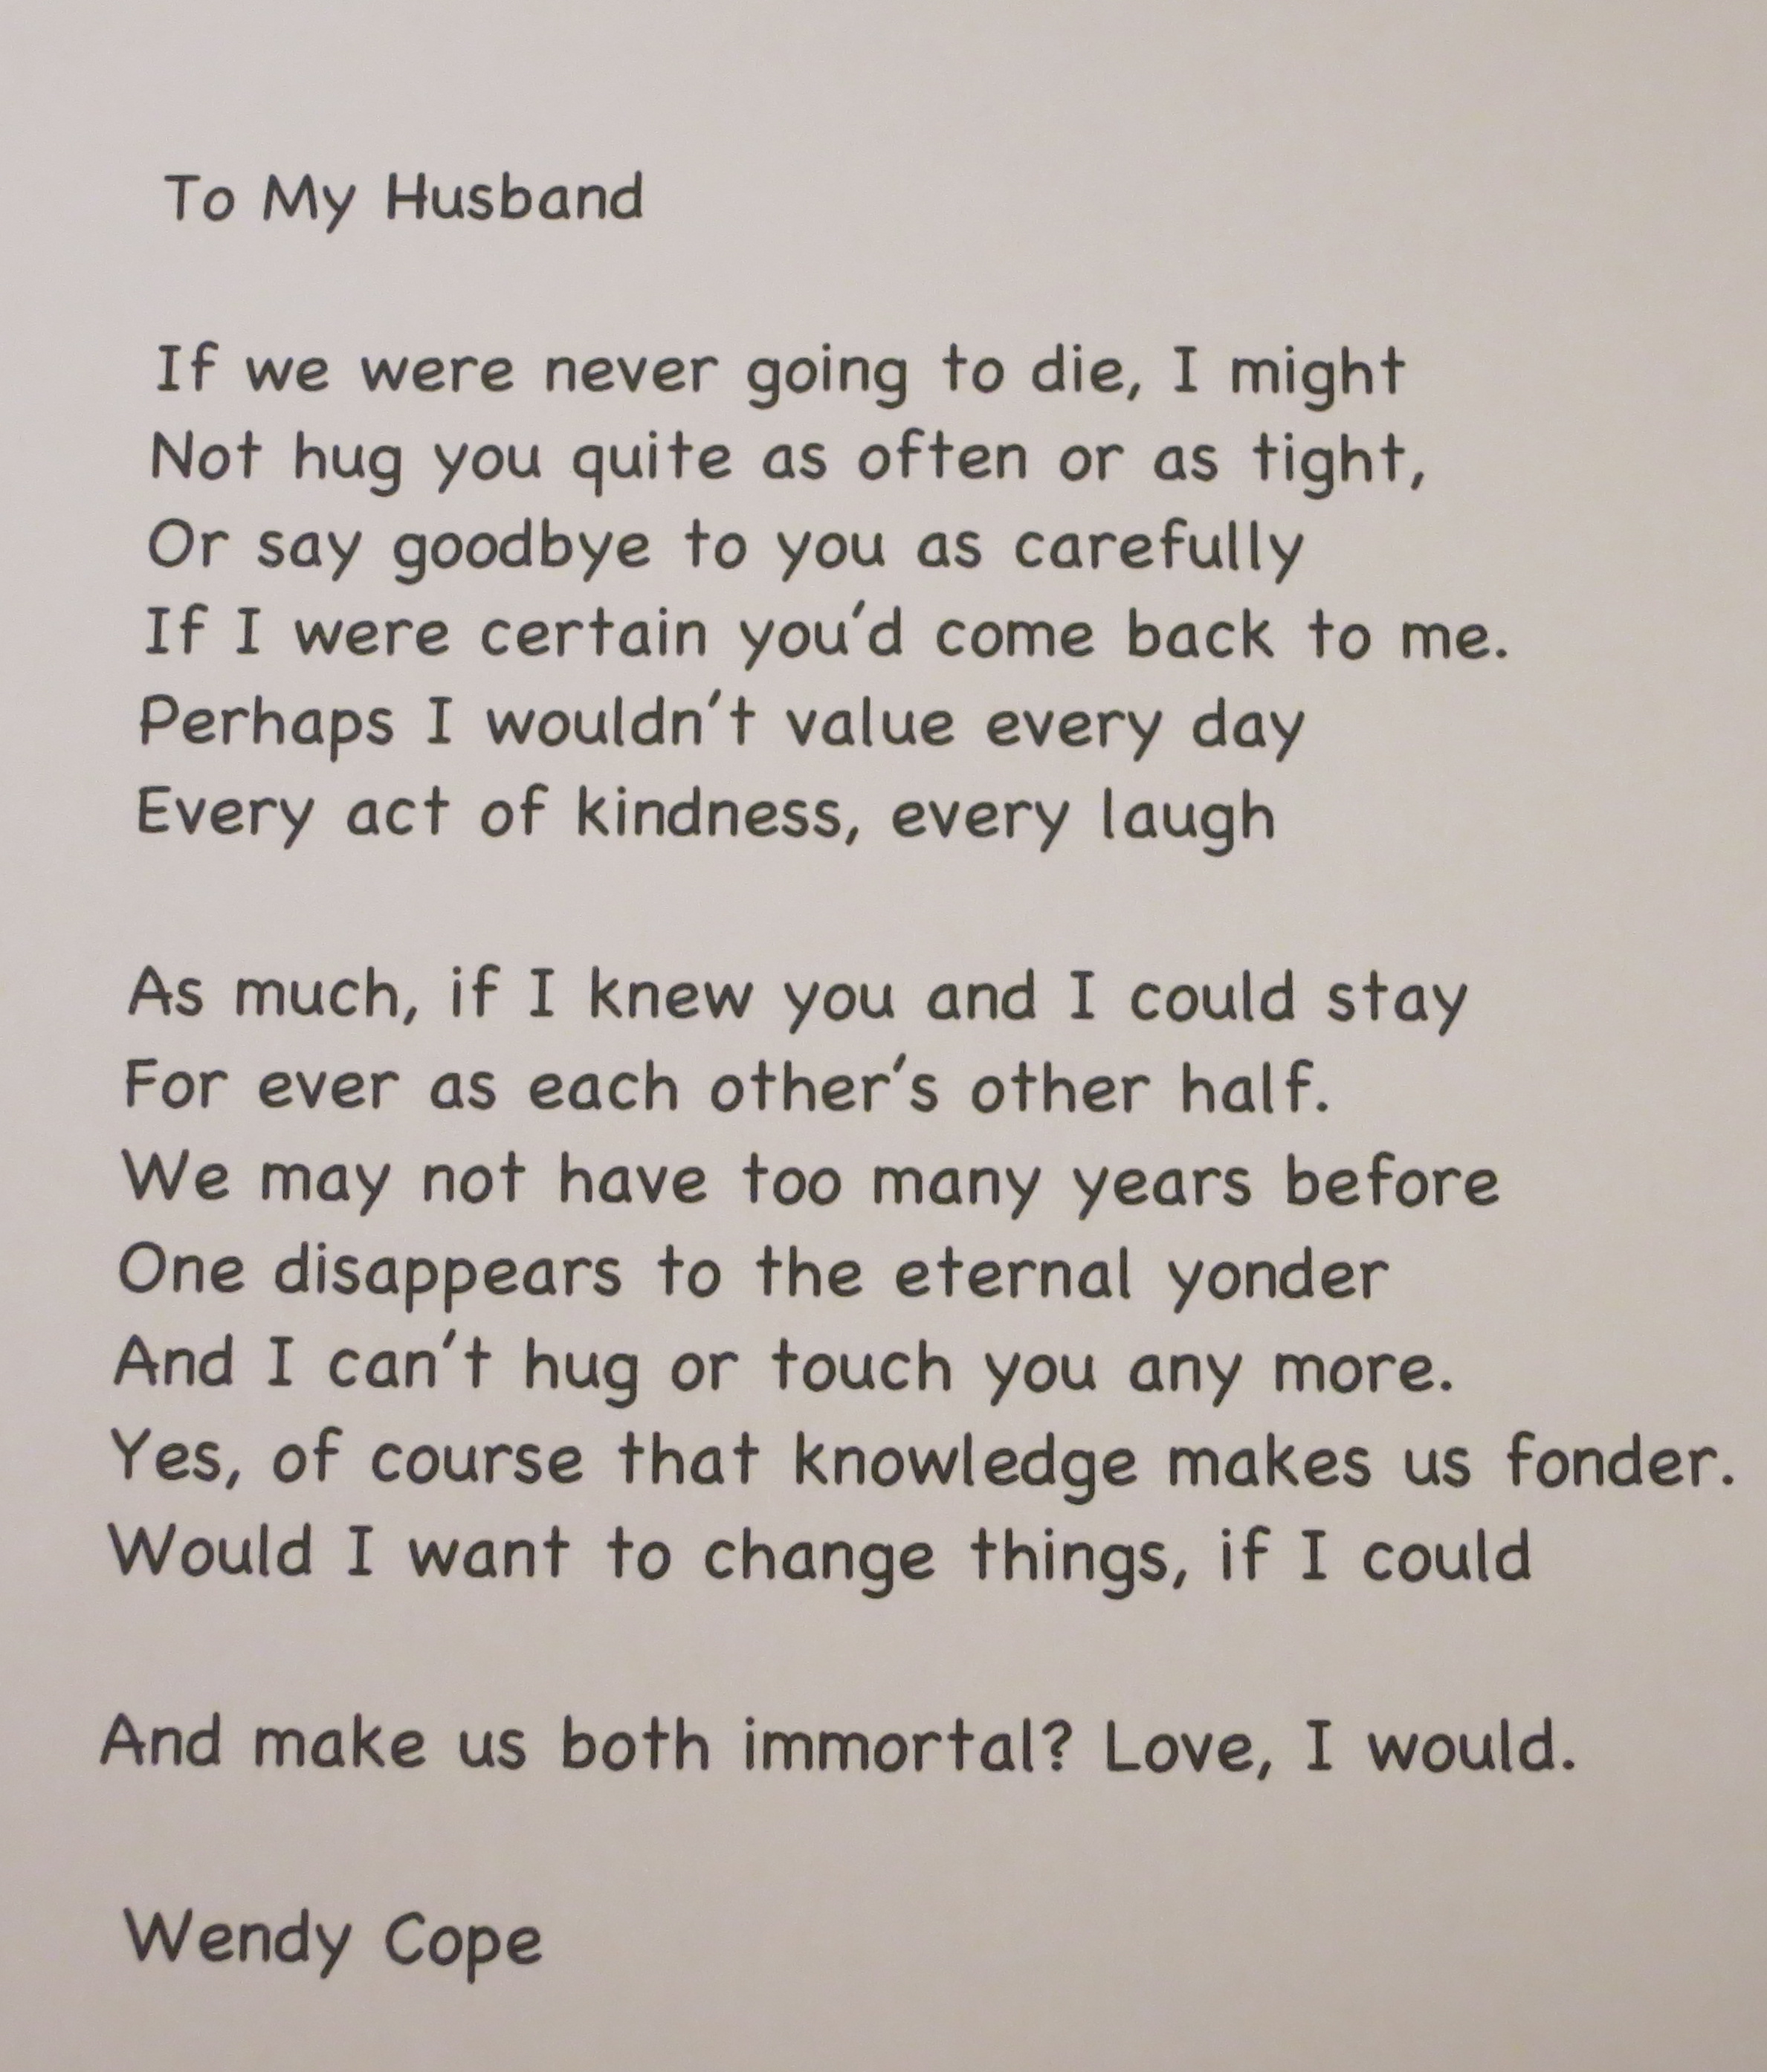 To My Husband
If we were never going to die, I might
Not hug you quite as often or as tight,
Or say goodbye to you as carefully
If I were certain you'd come back to me.
Perhaps I wouldn't value every day
Every act of kindness, every laugh
As much, if I knew you and I could stay
For ever as each other's other half.
We may not have too many years before
One disappears to the eternal yonder
And I can't hug or touch you any more.
Yes, of course that knowledge makes us fonder.
Would I want to change things, if I could
And make us both immortal? Love, I would.
Wendy Cope